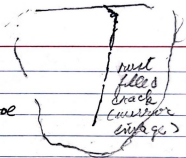 rust
filled
crack
(mirror
image)